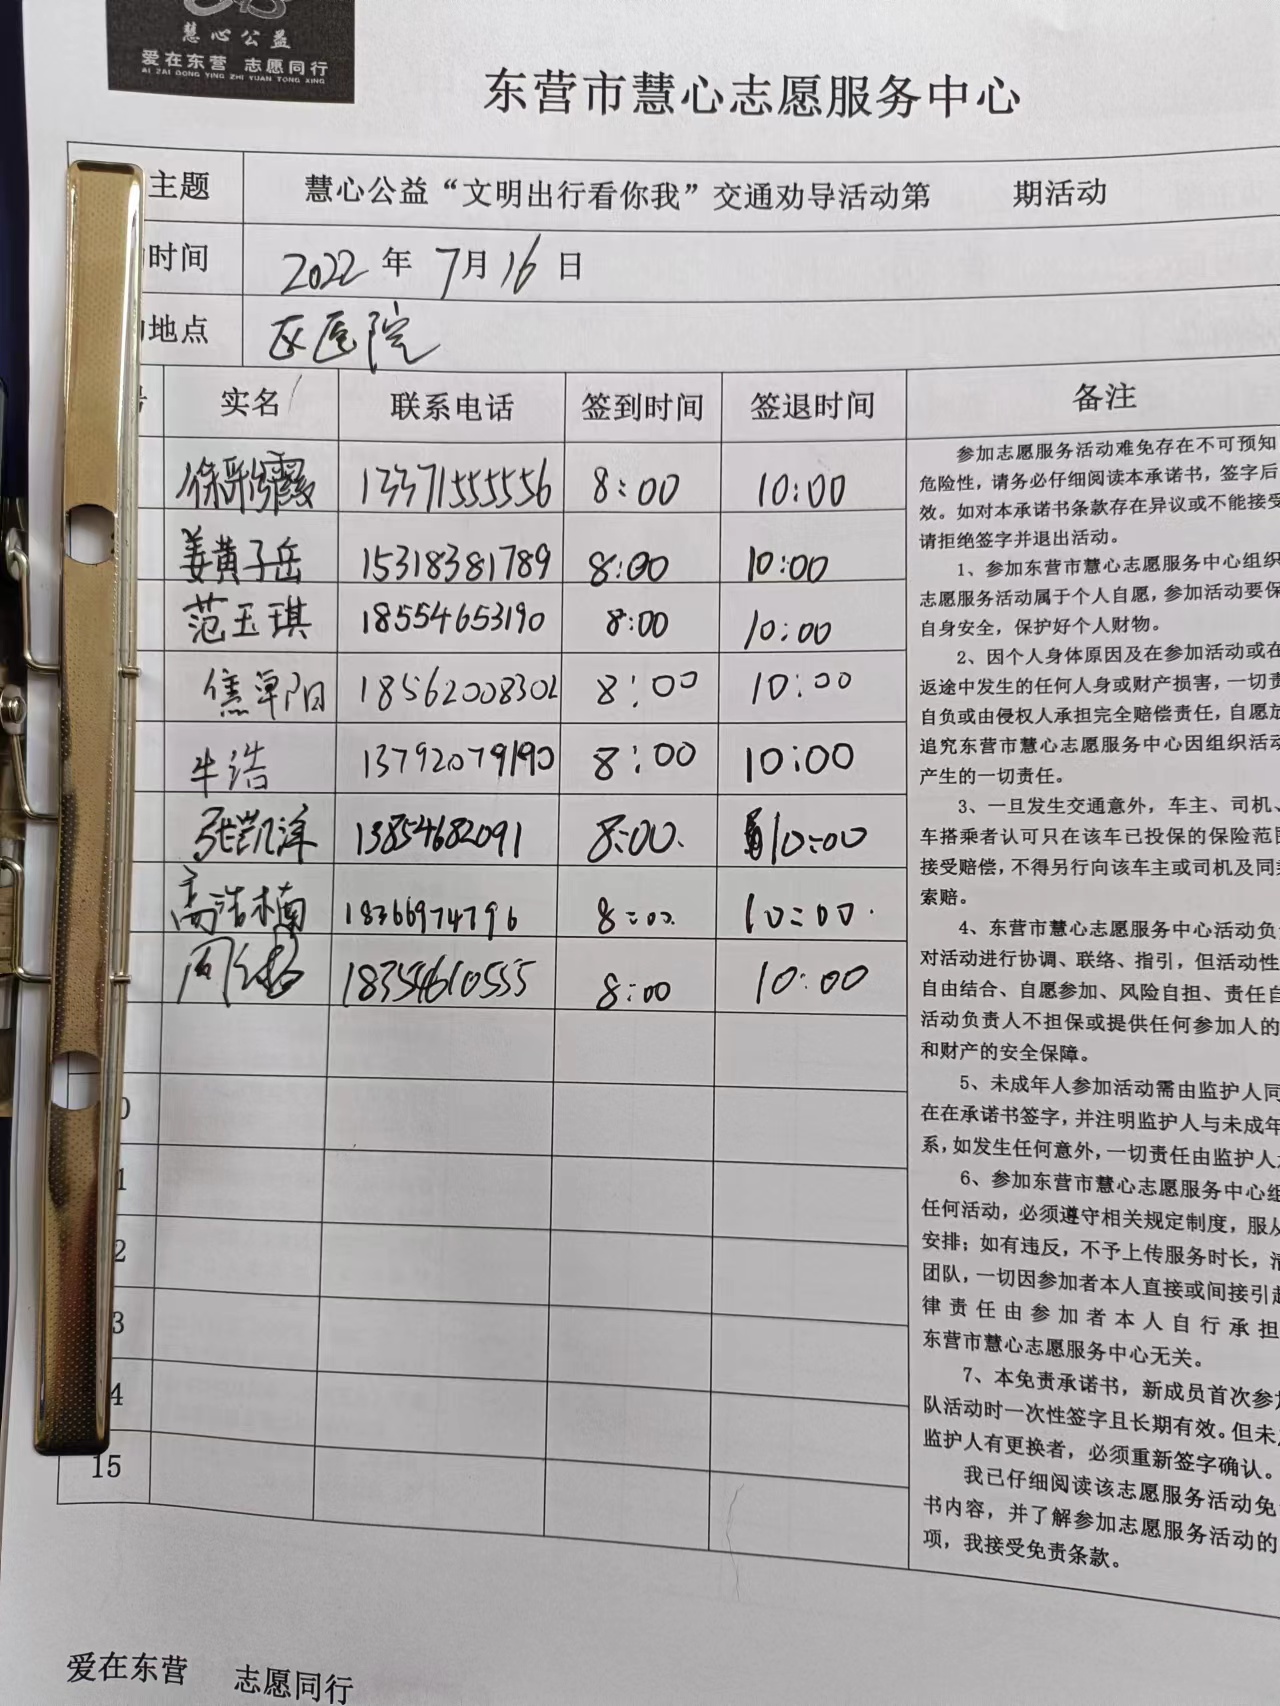 慧心公益
爱在东营 志愿同行
AI ZAI DONG YING ZHI YUAN TONG XING
东营市慧心志愿服务中心
主题 慧心公益“文明出行看你我”交通劝导活动第 期活动
时间 2022年7月16日
地点 区医院
实名 联系电话 签到时间 签退时间 备注
徐彩霞 13371555556 8:00 10:00
姜黄子岳 15318381789 8:00 10:00
范玉琪 18554653190 8:00 10:00
焦卓阳 18562008302 8:00 10:00
牛浩 13792079190 8:00 10:00
张凯洋 13854682091 8:00 10:00
高浩楠 18366974796 8:00 10:00
周 18354610555 8:00 10:00
15
参加志愿服务活动难免存在不可预知
危险性，请务必仔细阅读本承诺书，签字后
效。如对本承诺书条款存在异议或不能接受
请拒绝签字并退出活动。
1、参加东营市慧心志愿服务中心组织
志愿服务活动属于个人自愿，参加活动要保
自身安全，保护好个人财物。
2、因个人身体原因及在参加活动或在
返途中发生的任何人身或财产损害，一切责
自负或由侵权人承担完全赔偿责任，自愿放
追究东营市慧心志愿服务中心因组织活动
产生的一切责任。
3、一旦发生交通意外，车主、司机、
车搭乘者认可只在该车已投保的保险范围
接受赔偿，不得另行向该车主或司机及同乘
索赔。
4、东营市慧心志愿服务中心活动负
对活动进行协调、联络、指引，但活动性
自由结合、自愿参加、风险自担、责任自
活动负责人不担保或提供任何参加人的
和财产的安全保障。
5、未成年人参加活动需由监护人同
在在承诺书签字，并注明监护人与未成年
系，如发生任何意外，一切责任由监护人
6、参加东营市慧心志愿服务中心组
任何活动，必须遵守相关规定制度，服从
安排；如有违反，不予上传服务时长，清
团队，一切因参加者本人直接或间接引起
律责任由参加者本人自行承担
东营市慧心志愿服务中心无关。
7、本免责承诺书，新成员首次参加
队活动时一次性签字且长期有效。但未
监护人有更换者，必须重新签字确认。
我已仔细阅读该志愿服务活动免
书内容，并了解参加志愿服务活动的
项，我接受免责条款。
爱在东营 志愿同行